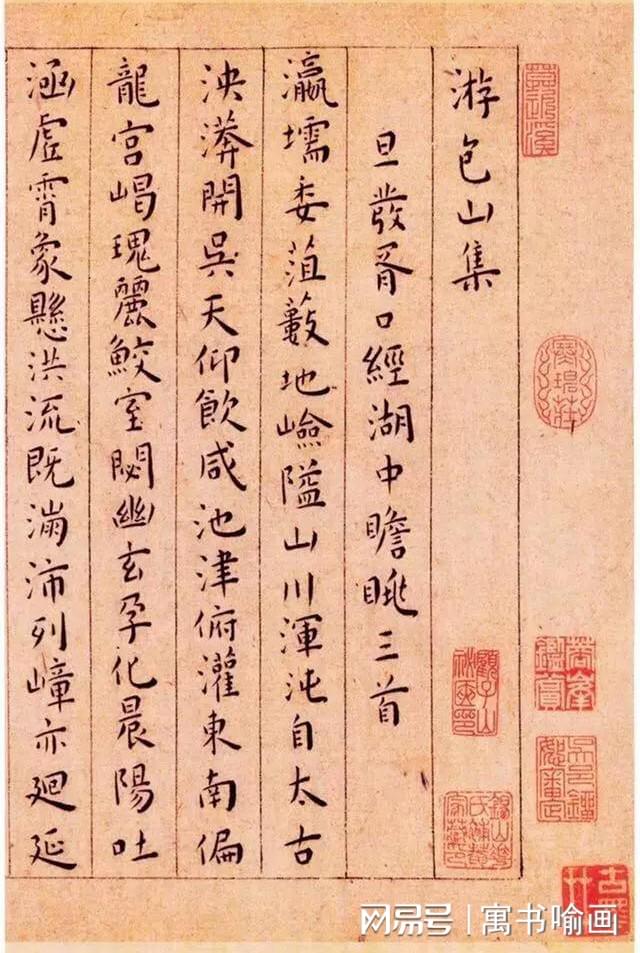 游包山集
旦發胥口經湖中瞻眺三首
瀛壖委菹藪地嶮隘山川渾沌自太古
泱漭開吳天仰飲咸池津俯灌東南偏
龍宮瑰麗鮫室閟幽玄孕化晨陽吐
涵虛霄象懸洪流既滿沛列嶂亦廻延
网易号 | 寓书喻画